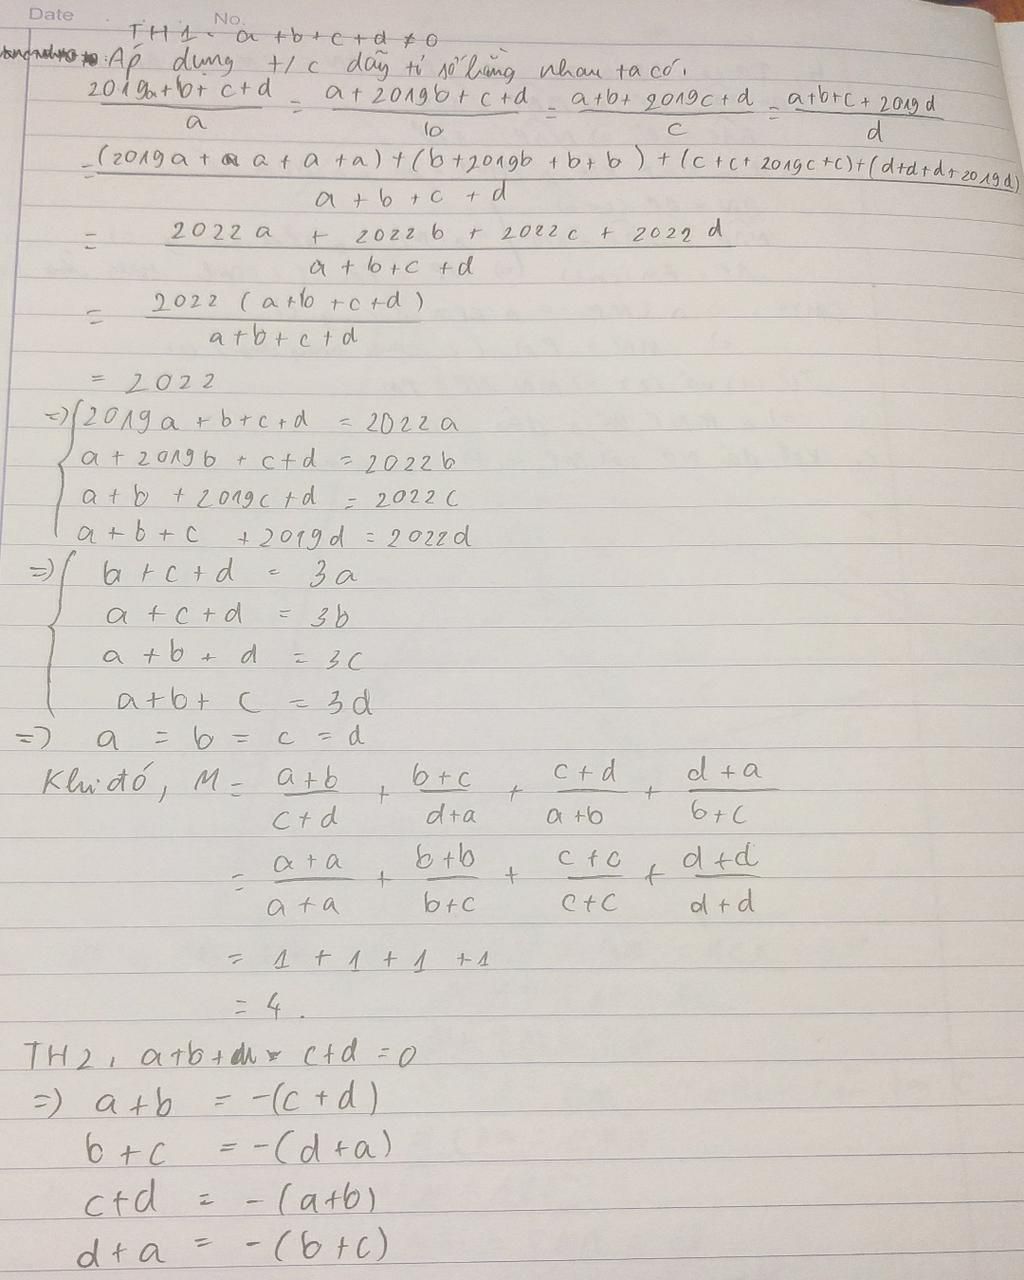 Date No.
TH1. a + b + c + d ≠ 0
Áp dụng t/c dãy tỉ số bằng nhau ta có.
(2019a + b + c + d)/a = (a + 2019b + c + d)/b = (a + b + 2019c + d)/c = (a + b + c + 2019d)/d
= ((2019a + a + a + a) + (b + 2019b + b + b) + (c + c + 2019c + c) + (d + d + d + 2019d))/(a + b + c + d)
= (2022a + 2022b + 2022c + 2022d)/(a + b + c + d)
= (2022(a + b + c + d))/(a + b + c + d)
= 2022
=> { 2019a + b + c + d = 2022a
a + 2019b + c + d = 2022b
a + b + 2019c + d = 2022c
a + b + c + 2019d = 2022d
=> { b + c + d = 3a
a + c + d = 3b
a + b + d = 3c
a + b + c = 3d
=> a = b = c = d
Khi đó, M = (a + b)/(c + d) + (b + c)/(d + a) + (c + d)/(a + b) + (d + a)/(b + c)
= (a + a)/(a + a) + (b + b)/(b + c) + (c + c)/(c + c) + (d + d)/(d + d)
= 1 + 1 + 1 + 1
= 4.
TH2. a + b + c + d = 0
=> a + b = -(c + d)
b + c = -(d + a)
c + d = -(a + b)
d + a = -(b + c)